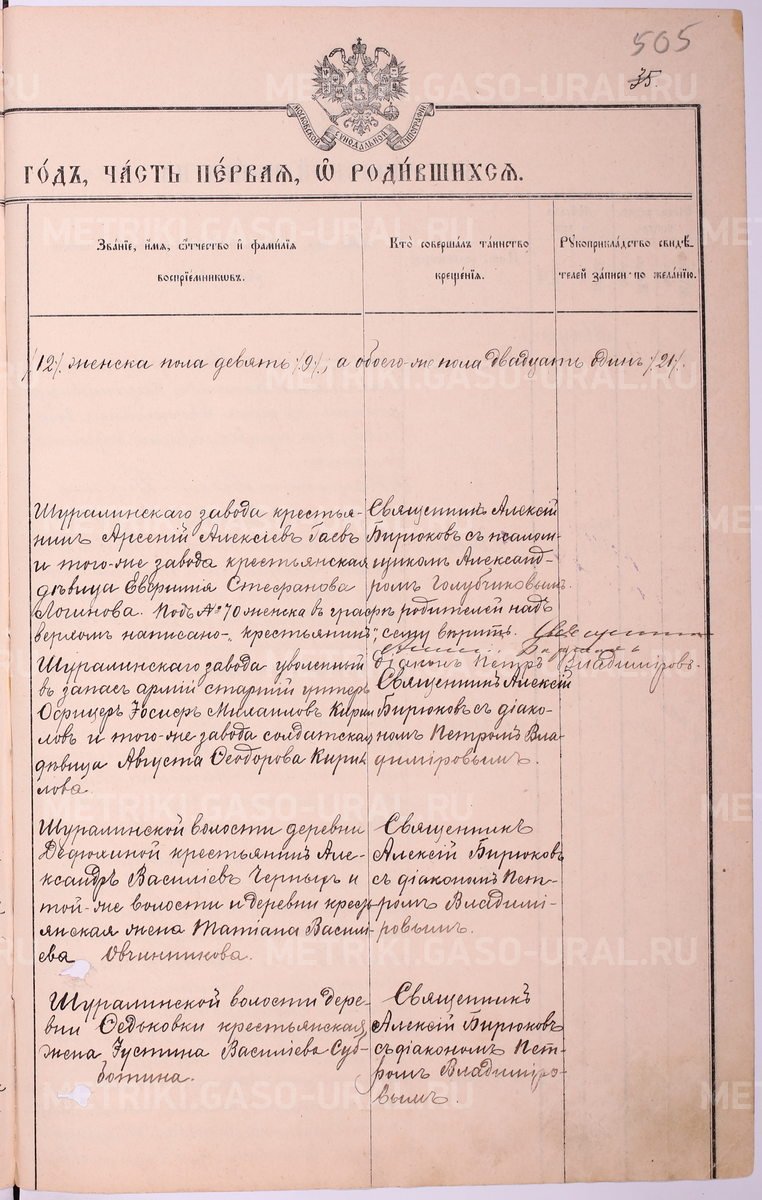 505
35.
МОСКОВСКОЙ СѴНОДАЛЬНОЙ ТИПОГРАФІИ
ГО́ДЪ, ЧА́СТЬ ПЕ́РВАЯ, Ѽ РОДИ́ВШИХСЯ.
Зва́нїе, и҆́мя, ѻ҆́тчество и҆ фами́лїя
воспрїе́мникѡвъ.
Кто̀ соверша́лъ та́инство
креще́нїя.
Рꙋкоприкла́дство свидѣ́-
телей за́писи по жела́нїю.
/12/. женска пола девять /:9/.; а обоего-же пола двадцать один /:21/.
Шуралинскаго завода крестья-
нинъ Арсеній Алексіевъ Гаевъ
и того-же завода крестьянская
дѣвица Евфимія Стефанова
Логинова. Подъ № 70 женска в граѳѣ родителей надъ
верхомъ написано-„крестьянинъ“; сему вѣрить.
Священникъ Алексій
Бирюковъ съ псалом-
щикомъ Александ-
ромъ Голубчиковымъ.
Священникъ
діаконъ Петръ Владиміровъ.
Шуралинскаго завода уволенный
въ запасъ арміи старшій унтеръ
Офицеръ Іосифъ Михаиловъ Кирил
ловъ и того-же завода солдатская
дѣвица Августа Ѳеодорова Кирил
лова.
Священникъ Алексій
Бирюковъ съ діако-
номъ Петромъ Вла-
диміровымъ.
Шуралинской волости деревни
крестьянинъ Але-
ксандръ Василіевъ Черныхъ и
той-же волости и деревни крест-
янская жена Татіана Васил-
ева Овчинникова.
Священникъ
Алексій Бирюковъ
съ діакономъ Пет-
ромъ Владимі-
ровымъ.
Шуралинской волости дере-
вни Ѳедьковки крестьянская
жена Іустина Василіева Суб-
ботина.
Священникъ
Алексій Бирюковъ
съ діакономъ Пет-
ромъ Владиміро-
вымъ.
METRIKI.GASO-URAL.RU